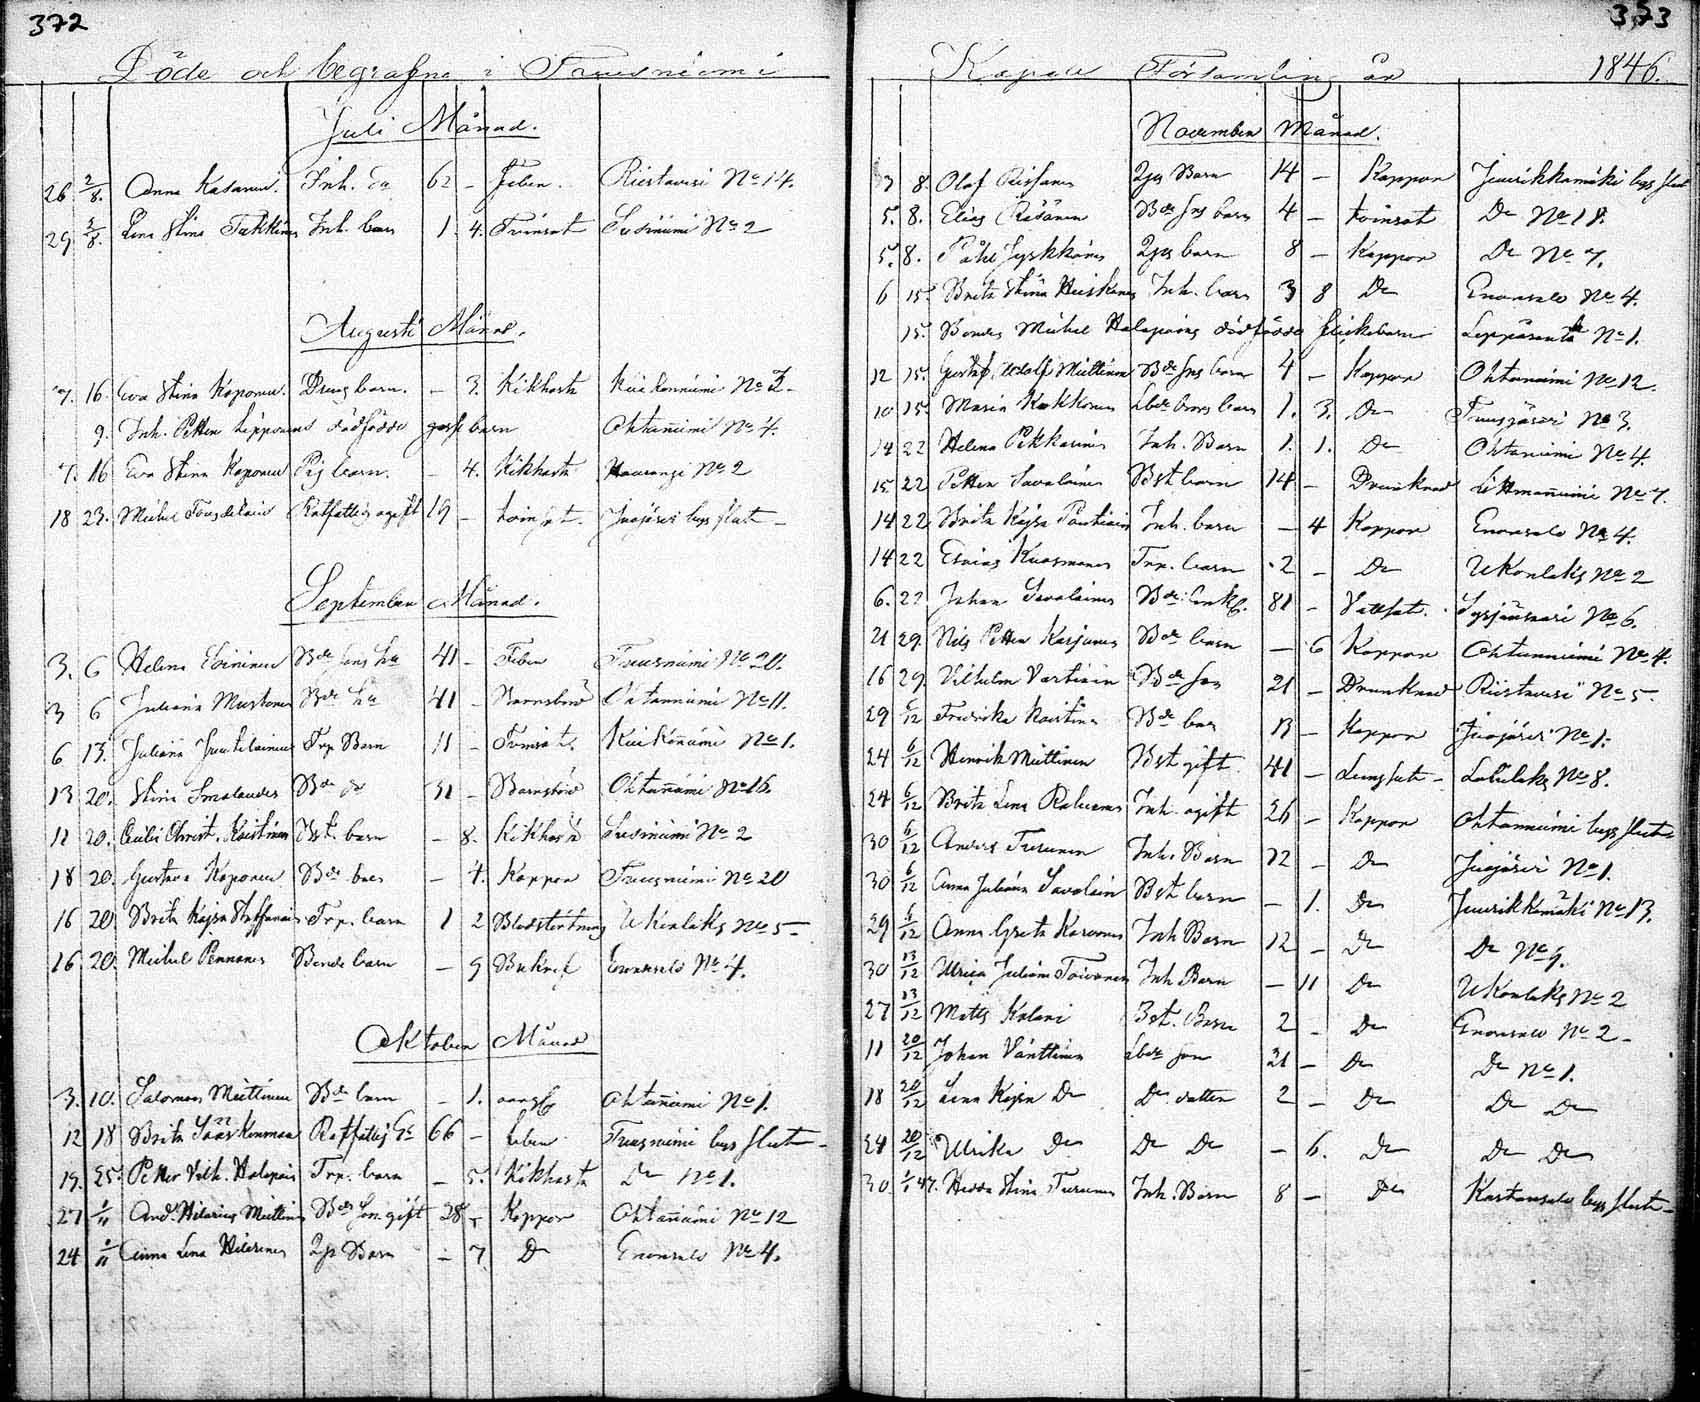 372
Döde och begrafne i Tuusniemi
Juli Månad.
26 2/8. Anna Kasanen. Inh. Ea 62 – Feber. Riistavesi No 14.
29 2/8. Lena Stina Tukkinen Inh. barn 1. 4. Tvinsot Susiniemi No 2
Augusti Månad.
7. 16. Eva Stina Koponen. Dreng barn. – 3. Kikhosta Kuikonniemi No 2
9. Inh. Petter Lipponens dödfödde goss barn Ohtaniemi No 4.
7. 16 Eva Stina Koponen Pig barn. – 4. Kikhosta Haarangi No 2
18 23. Michel Rotfattig ogift 19 – tvinsot. Juojärvi bys slut –
September Månad.
3. 6 Helena Toininen Bde sons hu 41 – Feber Tuusniemi No 20.
3 6 Juliana Mustonen Bde hu 41 – Barnsbörd Ohtaniemi No 11.
6 13. Juliana Juutilainen Trp Barn 11 – Tvinsot. Kuikoniemi No 1.
13 20. Stina Smolander Bde 31 – Barnsbörd Ohtaniemi No 16.
11 20. Christ. Koistinen Bst. barn – 8. Kikhosta Susiniemi No 2
18 20. Gustava Koponen Bde barn – 4. Koppor Tuusniemi No 20
16 20 Brita Kajsa Trp. barn 1 2 Blodstörtning Ukonlaks No 5 –
16. 20. Michel Pennanen Bonde barn – 9 Enonsalo No 4.
Oktober Månad
3. 10. Salomon Miettinen Bde barn – 1. Ohtaniemi No 1.
12 18 Brita Sääskenmaa Rotfattig 66 – feber Tuusniemi bys slut –
19. 25. Petter Vilh. Holopain Trp. barn – 5. Kikhosta Do No 1.
27 1/11 And. Hilarius Miettinen Bde Son. gift 28 – Koppor Ohtaniemi No 12
24 1/11 Anna Lena Barn – 7 Do Enonsalo No 4.
373
Kapell Församling år 1846.
November Månad.
3 8. Olof Barn 14 – Koppor Juurikkamäki bys slut
5. 8. Elias Räsänen Bde sns barn 4 – tvinsot Do No 18.
5. 8. Påhl Jyskkönen barn 8 – Koppor Do No 7.
6 15. Brita Stina Huiskonen Inh. barn 3 8 Do Enonsalo No 4.
15. Bondes Michel Holopains dödfödde flickebarn Leppäranta No 1.
12 15. Gustaf Adolf Miettinen Bde sns barn 4 – Koppor Ohtaniemi No 12.
10 15. Maria Kokkonen Lbde barns barn 1. 3. Do Tuusjärvi No 3.
14 22 Helena Pikkarinen Inh. Barn 1. 1. Do Ohtaniemi No 4.
15 22 Petter Savolainen Bst barn 14 – Drunknad Littmaniemi No 7.
14 22 Brita Kajsa Pentikäin Inh. barn – 4 Koppor Enonsalo No 4.
14 22 Esaias Kuosmanen Trp. barn 2 – Do Ukonlaks No 2
6. 22 Johan Savolainen Bde Enkl. 81 – Vattsot. Syrjänsaari No 6.
21 29. Nils Petter Karjunen Bde barn – 6 Koppor Ohtanniemi No 4.
16 29. Vilhelm Vartiain Bde son 21 – Drunknad Riistavesi No 5.
29 6/12 Fredrika Koistinen Bde barn 13 – Koppor Juojärvi No 1.
24 6/12 Henrik Miettinen Bst gift 41 – Lungsot – Laluluks No 8.
24 6/12 Brita Lena Inh. ogift 26 – Koppor Ohtanniemi bys slut
30 6/12 Anders Turunen Inh. Barn 12 – Do Juojärvi No 1.
30 6/12 Anna Juliana Savolain Bst barn – 1. Do Juurikkamäki No 13.
29 6/12 Anna Greta Karvonen Inh Barn 12 – Do Do No 9.
30 13/12 Ulrica Juliana Toivonen Inh Barn – 11 Do Ukonlaks No 2
27 13/12 Matts Kolari Bst. Barn 2 – Do Enonsalo No 2 –
11 20/12 Johan Vänttinen Lbde son 21 – Do Do No 1.
18 20/12 Lena Kajsa Do Do dotter 2 – Do Do Do
24 20/12 Ulrika Do Do Do – 6. Do Do Do
30 1/1 47. Hedda Stina Turunen Inh. Barn 8 – Do Kartansalo bys slut –